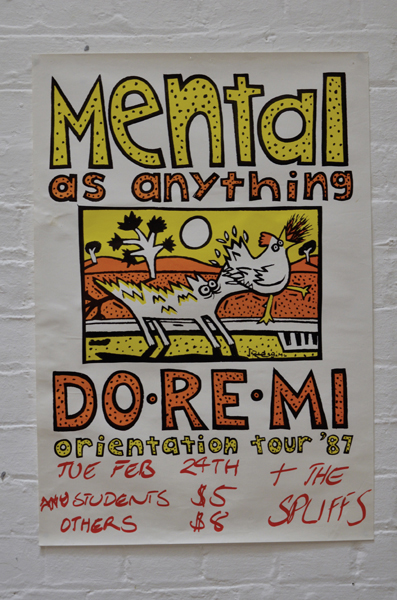 Mental
as anything
DO·RE·MI
orientation tour '87
TUE FEB 24TH + THE
STUDENTS $5 SPLIFFS
OTHERS $8